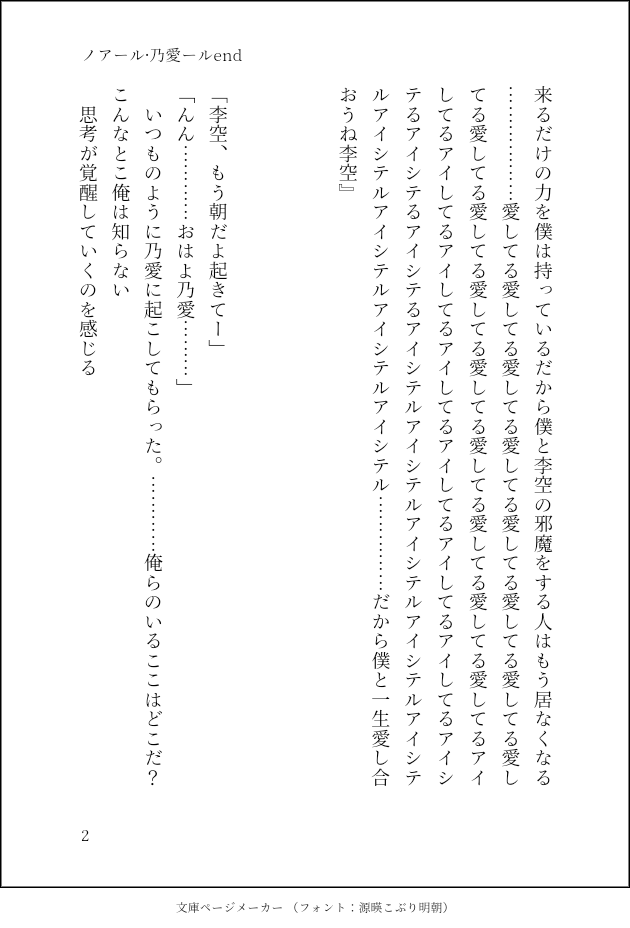 ノアール·乃愛ールend
来るだけの力を僕は持っているだから僕と李空の邪魔をする人はもう居なくなる
………………愛してる愛してる愛してる愛してる愛してる愛してる愛してる愛し
てる愛してる愛してる愛してる愛してる愛してる愛してる愛してる愛してるアイ
してるアイしてるアイしてるアイしてるアイしてるアイしてるアイしてるアイシ
テるアイシテるアイシテるアイシテルアイシテルアイシテルアイシテルアイシテ
ルアイシテルアイシテルアイシテルアイシテル……………だから僕と一生愛し合
おうね李空』
「李空、もう朝だよ起きてー」
「んん…………おはよ乃愛………」
　いつものように乃愛に起こしてもらった。…………俺らのいるここはどこだ？
こんなとこ俺は知らない
　思考が覚醒していくのを感じる
2
文庫ページメーカー（フォント：源暎こぶり明朝）